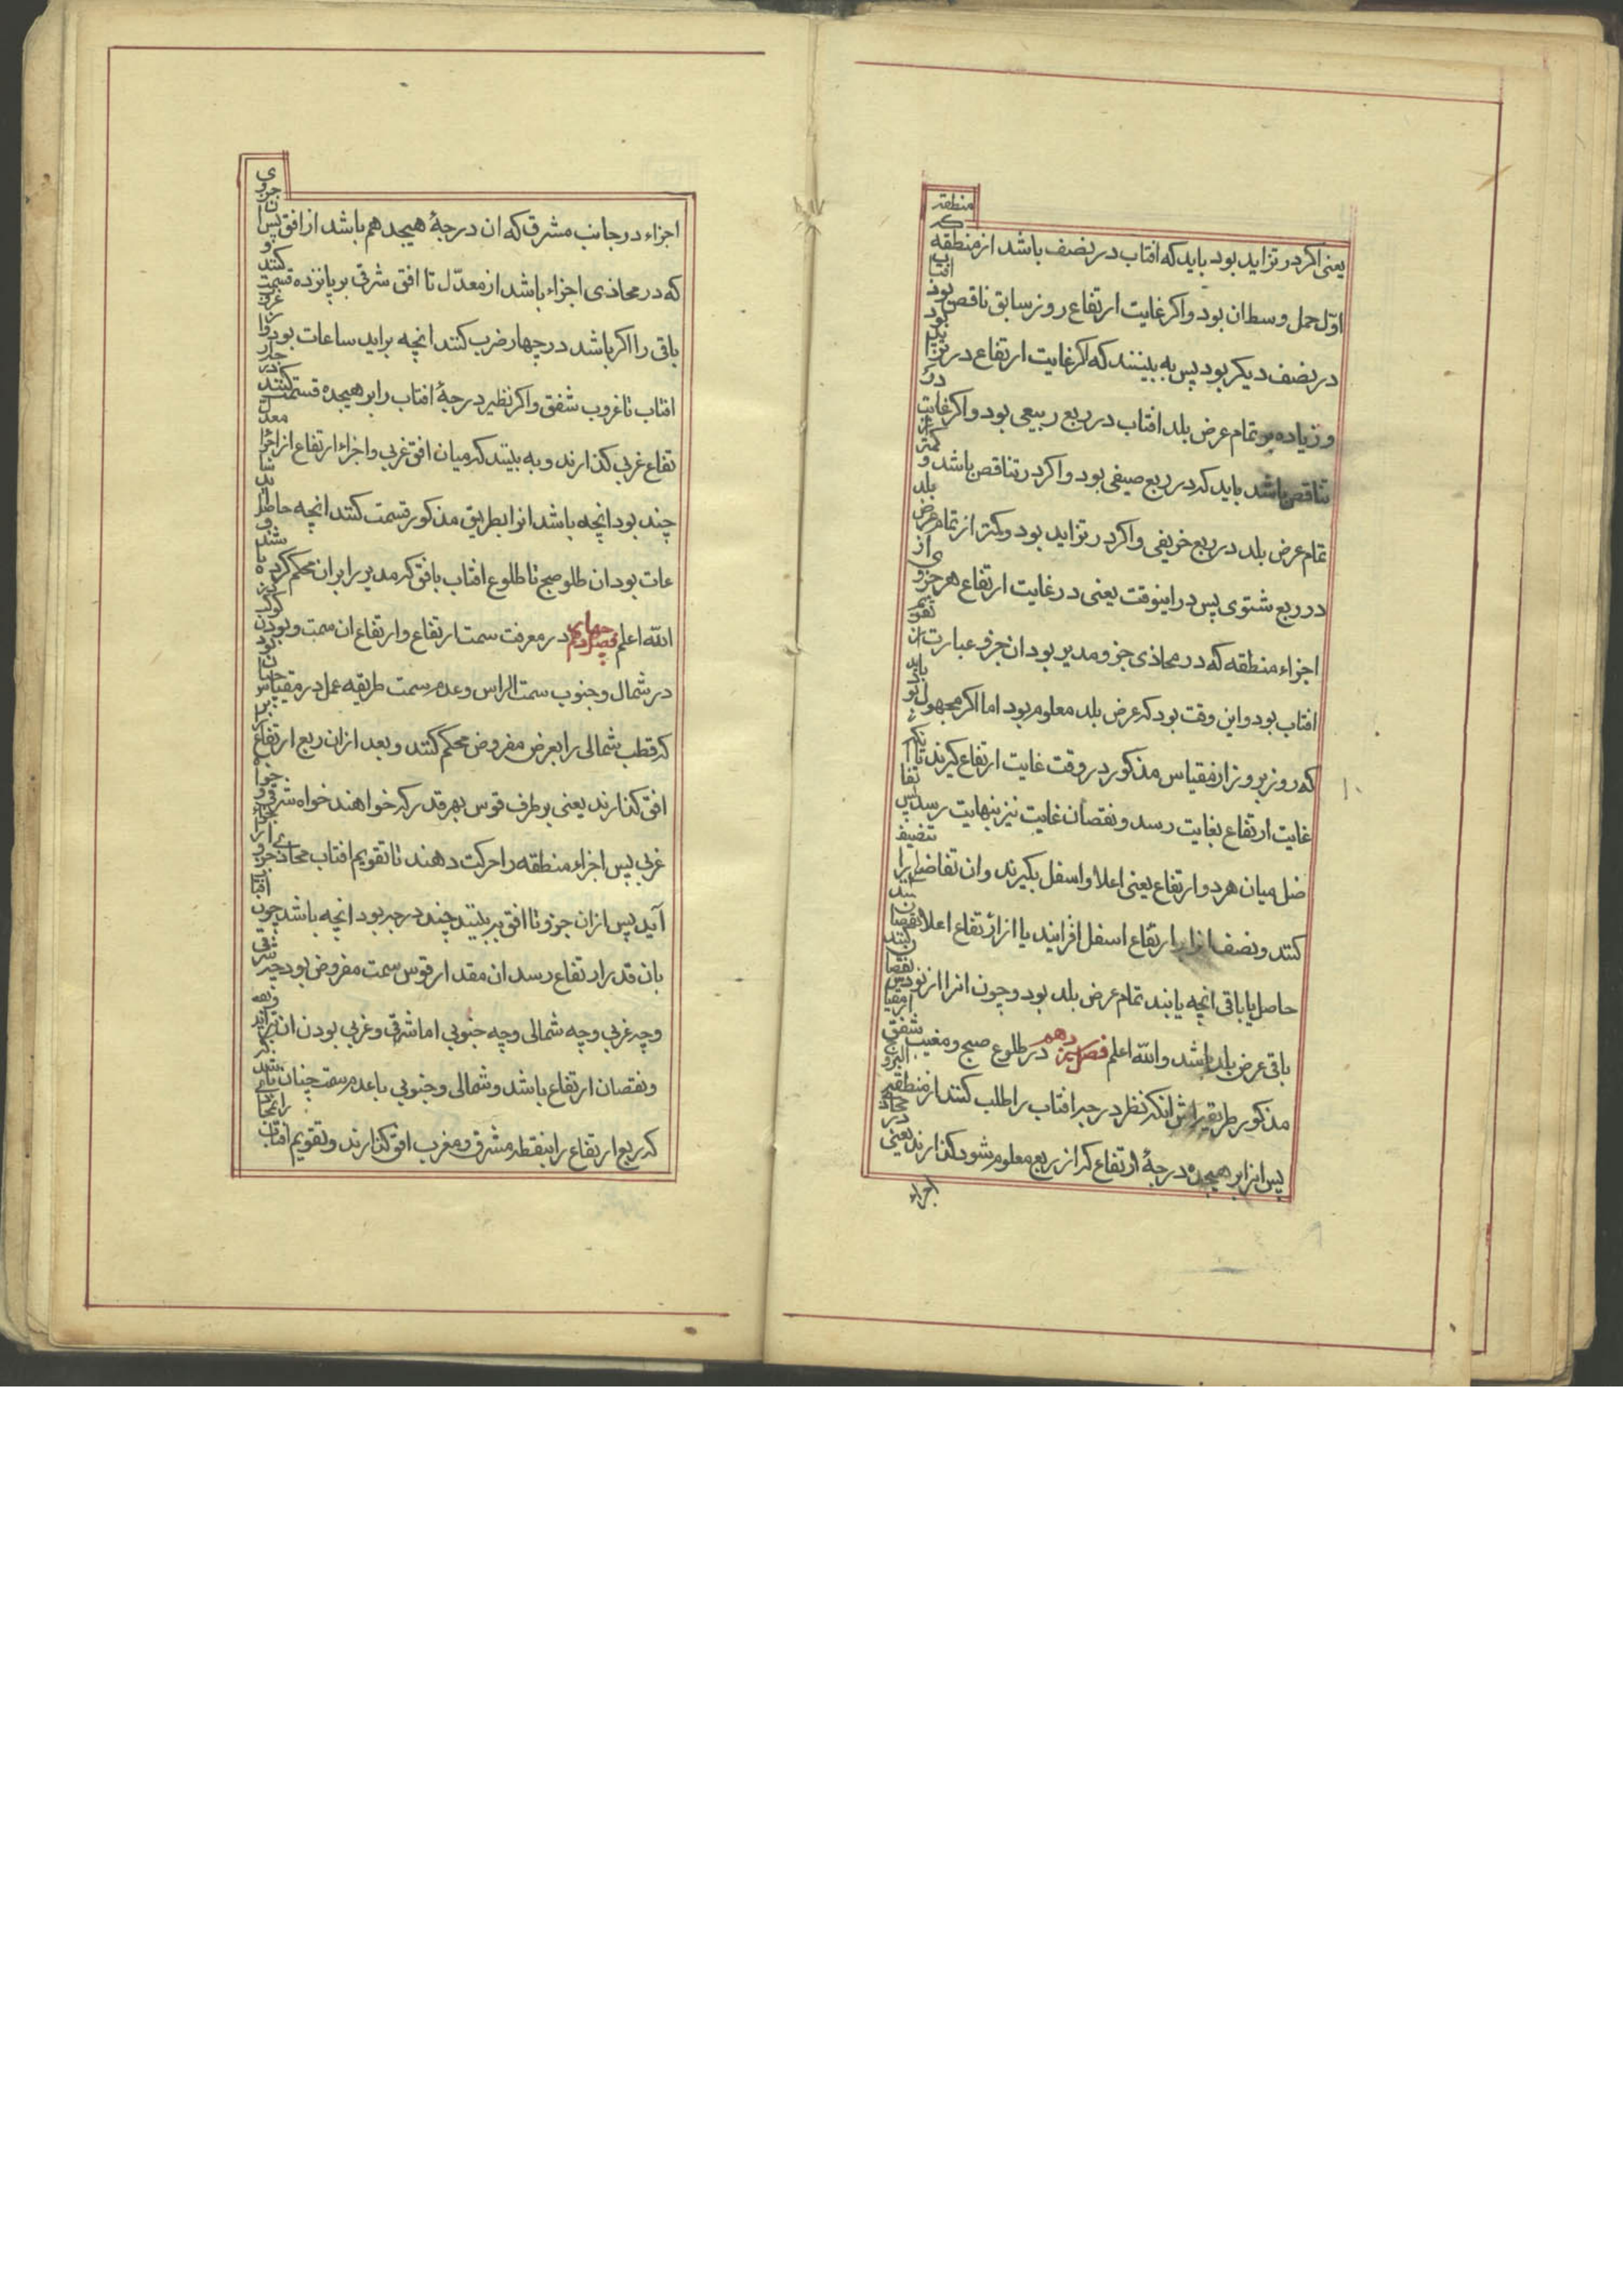 یعنی اکر در تزاید بود باید که افتاب در نصف باشد از منطقه منطقه که
اوّل حمل وسط ان بود و اکر غایت ارتفاع روز سابق ناقص بود افتاب
در نصف دیکر بود پس به بینند که اکر غایت ارتفاع در تزاید بود
و زیاده بر تمام عرض بلد افتاب در ربع ربیعی بود و اکر غایت در
تناقص باشد باید که در ربع صیفی بود و اکر در تناقص باشد و کمتر از
تمام عرض بلد در ربع خریفی و اکر در تزاید بود و کمتر از تمام عرض بلد
در ربع شتوی پس در اینوقت یعنی در غایت ارتفاع هر جزوی از
اجزاء منطقه که در محاذی جزو مدیر بود ان جزو عبارت از تقویم
افتاب بود و این وقت بود که عرض بلد معلوم بود اما اکر مجهول بود باید
که روز بروز از مقیاس مذکور در وقت غایت ارتفاع کیرند تا انکه
غایت ارتفاع بغایت رسد و نقصان غایت نیز بنهایت رسد پس تفا
ضل میان هر دو ارتفاع یعنی اعلا و اسفل بکیرند و ان تفاضل را تنصیف
کنند و نصف انرا بر ارتفاع اسفل افزایند یا از ارتفاع اعلا نقصان
حاصل یا باقی انچه یابند تمام عرض بلد بود و چون انرا از نود نقصان کنند
باقی عرض بلد باشد و الله اعلم فصل سیزدهم در طلوع صبح و مغیب شفق از مقیاس
مذکور طریقه اش انکه نظیر درجه افتاب را طلب کنند از منطقه البروج
پس انرا بر هیجده درجهٔ ارتفاع که از ربع معلوم شود کذارند یعنی در محاذ
اجزاء
اجزاء در جانب مشرق که ان درجهٔ هیجدهم باشد از افق پس از جزوی
که در محاذی اجزاء باشد از معدّل تا افق شرقی بر پانزده قسمت کنند و
باقی را اکر باشد در چهار ضرب کنند انچه براید ساعات بود از غروب
افتاب تا غروب شفق و اکر نظیر درجهٔ افتاب را بر هیجده قسمت کنند در جدار
تفاع غربی کذارند و به بینند که میان افق غربی و اجزاء ارتفاع از اجزاء معدل
چند بود انچه باشد انرا بطریق مذکور قسمت کنند انچه حاصل اید سا
عات بود ان طلوع صبح تا طلوع افتاب بافق که مدیر را بر ان محکم کرده باشند و
الله اعلم فصل چهاردهم در معرفت سمت ارتفاع و ارتفاع ان سمت و بودن کوکب
در شمال و جنوب سمت الراس و عدم سمت طریقه عمل در مقیاس چنان بود
که قطب شمالی را بعرض مفروض محکم کنند و بعد از ان ربع ارتفاع را بر
افق کذارند یعنی بر طرف قوس بهر قدر که خواهند خواه شرقی و خواه
غربی پس اجزاء منطقه را حرکت دهند تا تقویم افتاب محاذی جزو ارتفاع
آید پس از ان جزو تا افق ببینند چند درجه بود انچه باشد چون افتاب
بان قدر ارتفاع رسد ان مقدار قوس سمت مفروض بود چه شرقی
و چه غربی و چه شمالی و چه جنوبی اما شرقی و غربی بودن ان بتزاید
و نقصان ارتفاع باشد و شمالی و جنوبی با عدم سمت چنان باشد
که ربع ارتفاع را بنقطه مشرق و مغرب افق کذارند و تقویم افتاب را محاذی